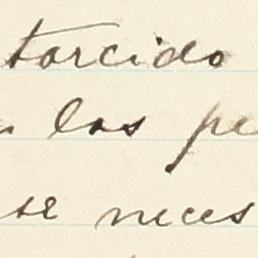 torcido
los pe
se neces